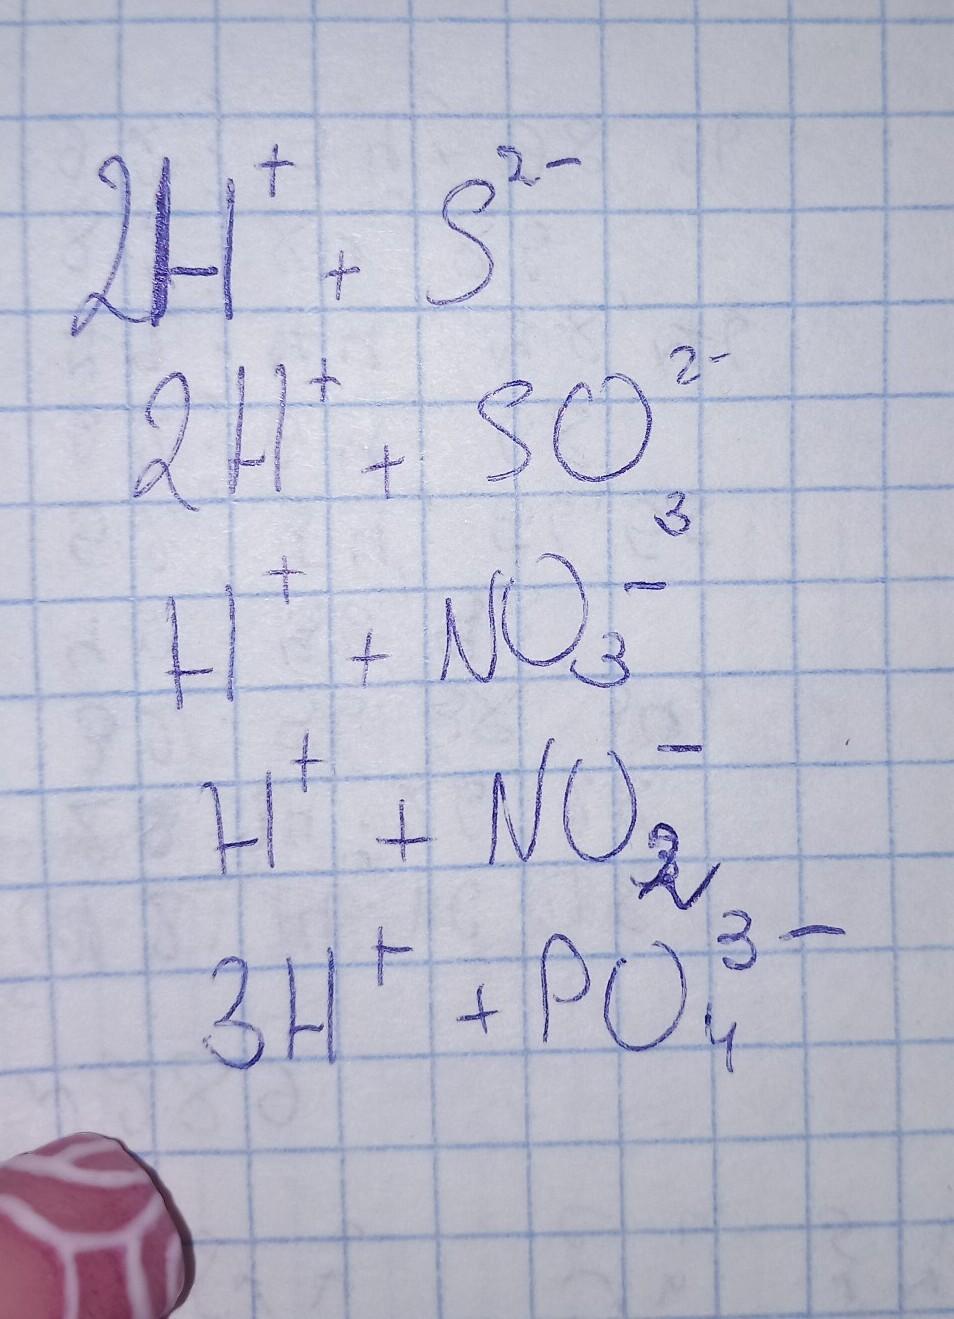 2H⁺ + S²⁻
2H⁺ + SO₃²⁻
H⁺ + NO₃⁻
H⁺ + NO₂⁻
3H⁺ + PO₄³⁻